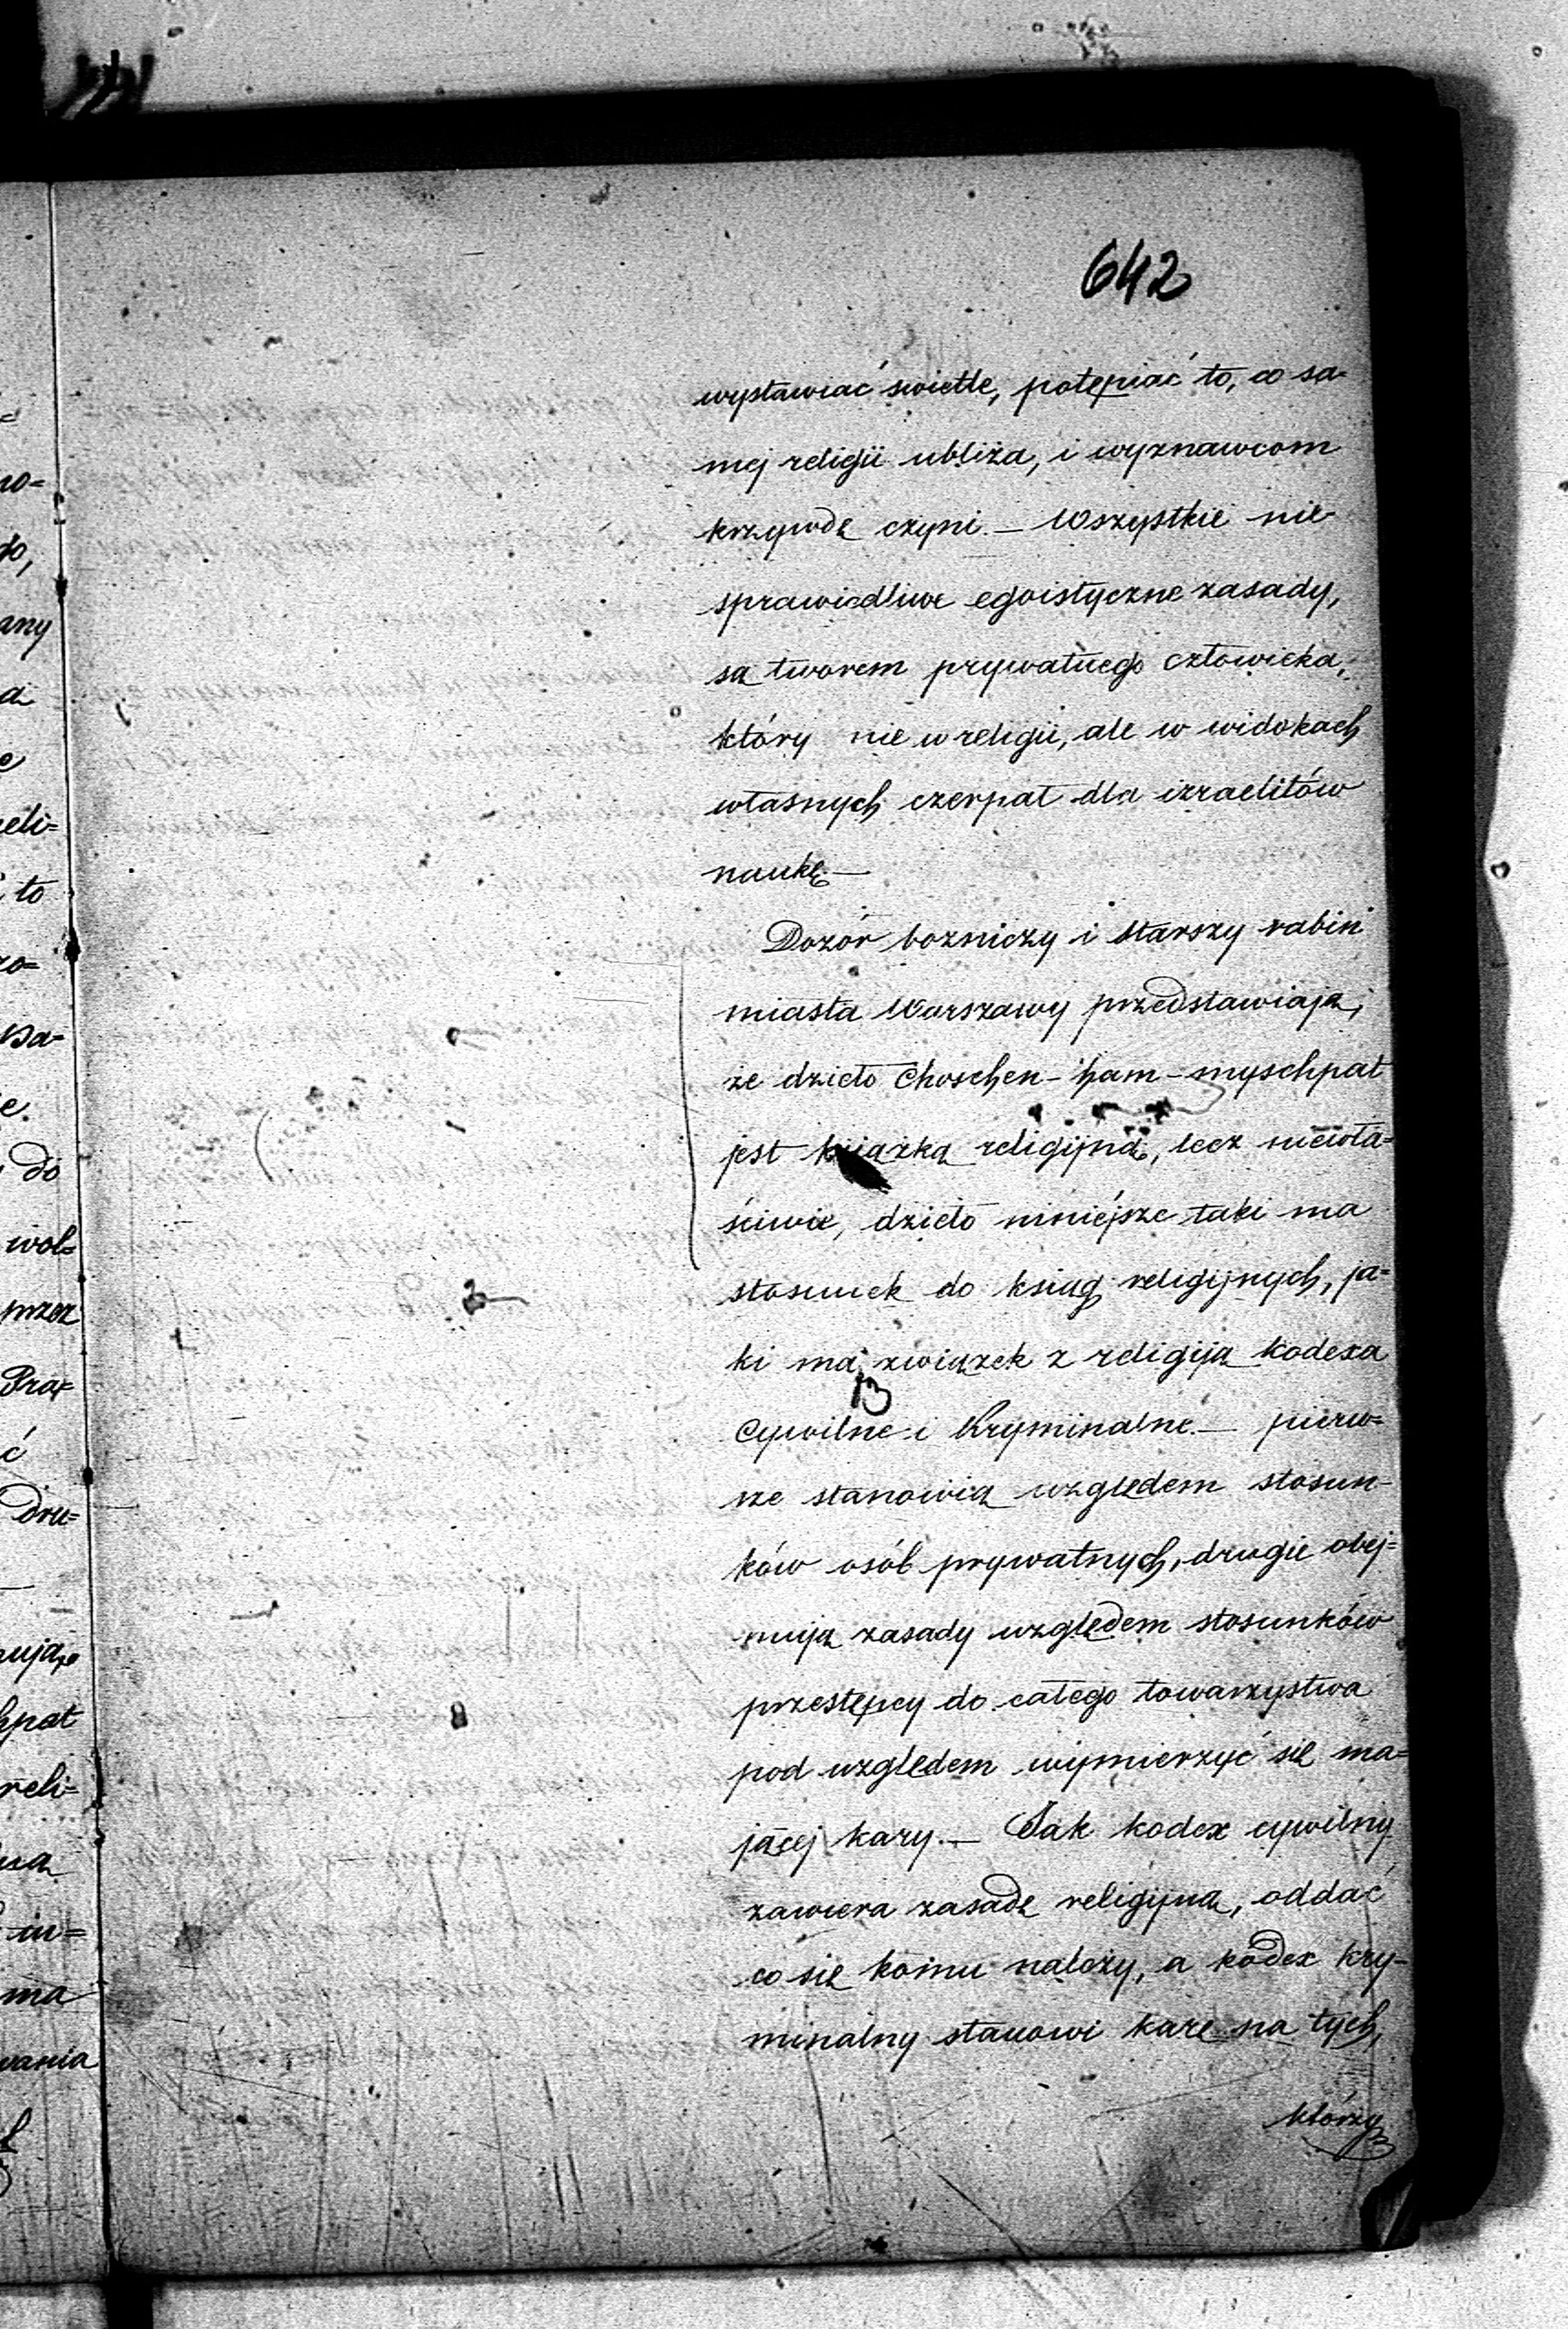 642
wystawiać swietle, potępiać to, co sa=
mej religii ubliża, i wyznawcom
krzywdę czyni. — Wszystkie nie-
sprawiedliwe egoistyczne zasady,
są tworem prywatnego człowieka,
który nie w religii, ale w widokach
własnych czerpał dla izraelitów
naukę. —
Dozór bozniczy i starszy rabin
miasta Warszawy przedstawiają,
że dzieło Choschen-ham-myschpat
jest książką religijną, lecz niewła=
ściwie, dzieło niniejsze taki ma
stosunek do ksiąg religijnych, ja=
ki mają związek z religiją kodexa
Cywilne i Kryminalne. — pierw=
sze stanowią względem stosun-
ków osób prywatnych, drugie obej=
mują zasady względem stosunków
przestępcy do całego towarzystwa
pod względem wymierzyć się ma=
jącej kary. — Jak kodex cywilny
zawiera zasadę religijną, oddać
co się komu należy, a kodex kry-
minalny stanowi karę na tych,
którzy
no=
go,
any
reli=
to
do
wol=
przez
Dru=
ują,
hpat
reli=
in=
ma
wania